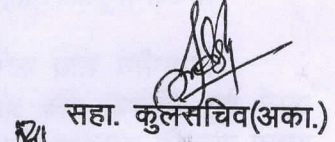 सहा. कुलसचिव(अका.)